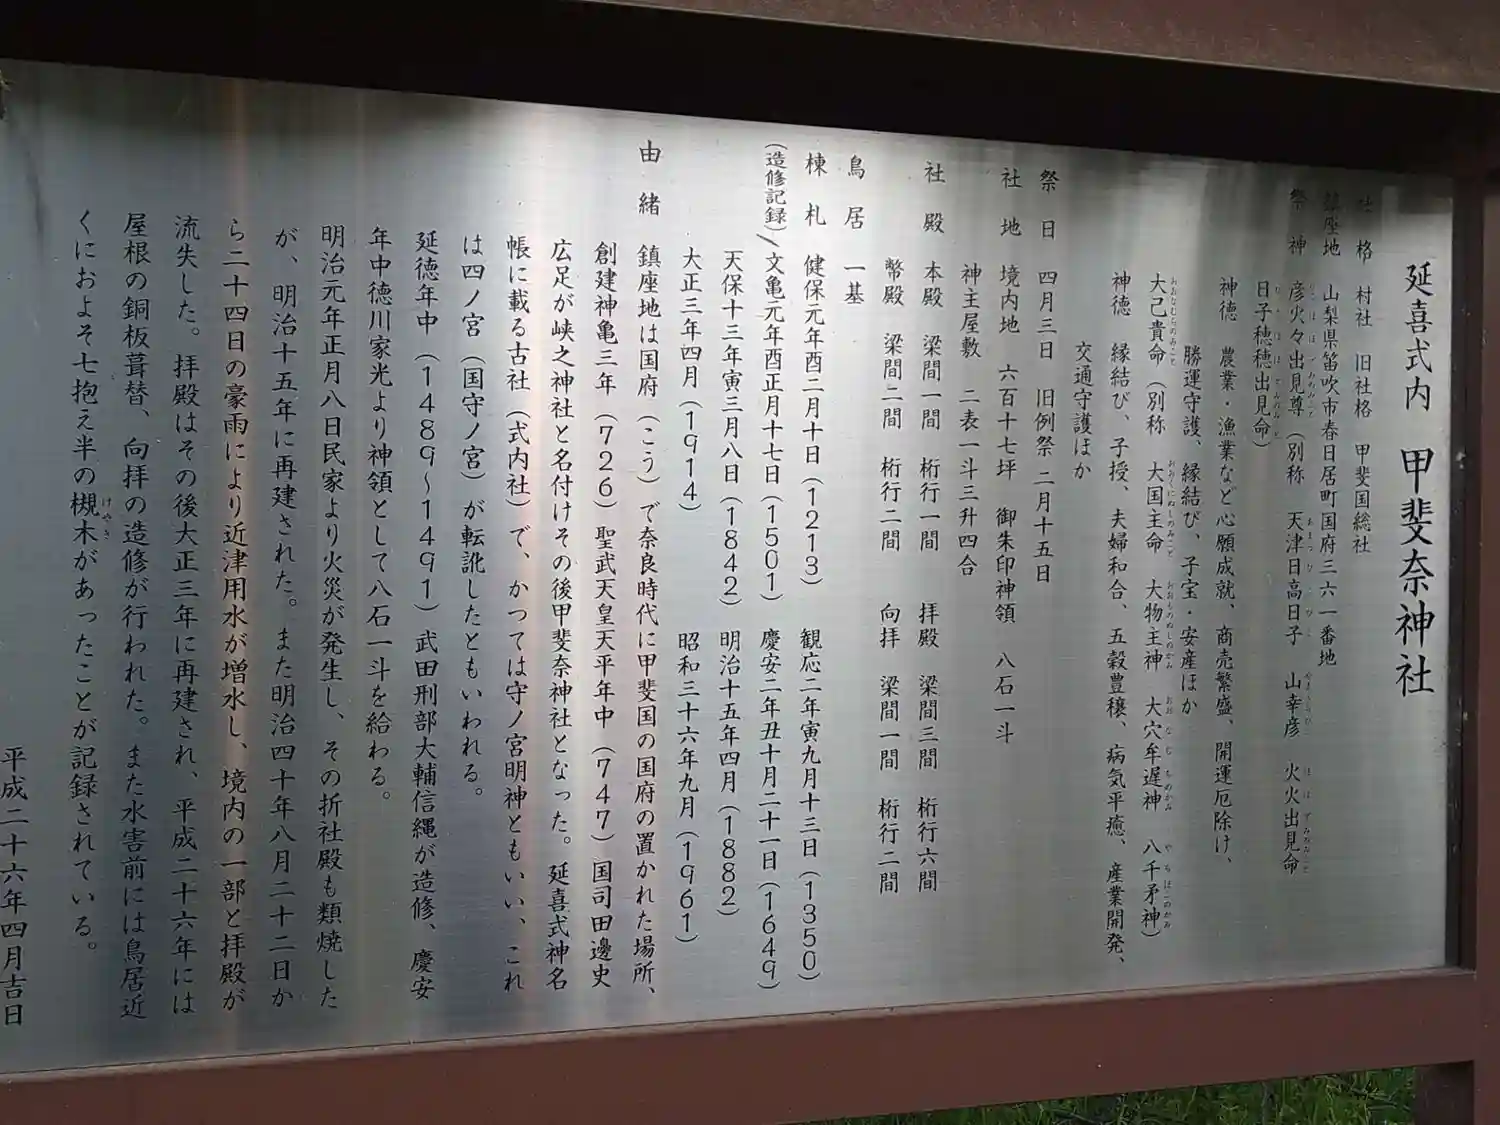 延喜式内 甲斐奈神社
社格 村社 旧社格 甲斐国総社
鎮座地 山梨県笛吹市春日居町国府三六一番地
祭神 彦火々出見尊（別称 天津日高日子 山幸彦 火火出見命
日子穂穂出見命）
神徳 農業・漁業など心願成就、商売繁盛、開運厄除け、
勝運守護、縁結び、子宝・安産ほか
大己貴命（別称 大国主命 大物主神 大穴牟遅神 八千矛神）
神徳 縁結び、子授、夫婦和合、五穀豊穣、病気平癒、産業開発、
交通守護ほか
祭日 四月三日 旧例祭 二月十五日
社地 境内地 六百十七坪 御朱印神領 八石一斗
神主屋敷 二表一斗三升四合
社殿 本殿 梁間一間 桁行一間 拝殿 梁間三間 桁行六間
幣殿 梁間二間 桁行二間 向拝 梁間一間 桁行二間
鳥居 一基
棟札 健保元年酉二月十日（1213） 観応二年寅九月十三日（1350）
（造修記録）文亀元年酉正月十七日（1501） 慶安二年丑十月二十一日（1649）
天保十三年寅三月八日（1842） 明治十五年四月（1882）
大正三年四月（1914） 昭和三十六年九月（1961）
由緒 鎮座地は国府（こう）で奈良時代に甲斐国の国府の置かれた場所、
創建神亀三年（726）聖武天皇天平年中（747）国司田邊史
広足が峡之神社と名付けその後甲斐奈神社となった。延喜式神名
帳に載る古社（式内社）で、かつては守ノ宮明神ともいい、これ
は四ノ宮（国守ノ宮）が転訛したともいわれる。
延徳年中（1489〜1491）武田刑部大輔信縄が造修、慶安
年中徳川家光より神領として八石一斗を給わる。
明治元年正月八日民家より火災が発生し、その折社殿も類焼した
が、明治十五年に再建された。また明治四十年八月二十二日か
ら二十四日の豪雨により近津用水が増水し、境内の一部と拝殿が
流失した。拝殿はその後大正三年に再建され、平成二十六年には
屋根の銅板葺替、向拝の造修が行われた。また水害前には鳥居近
くにおよそ七抱え半の槻木があったことが記録されている。
平成二十六年四月吉日